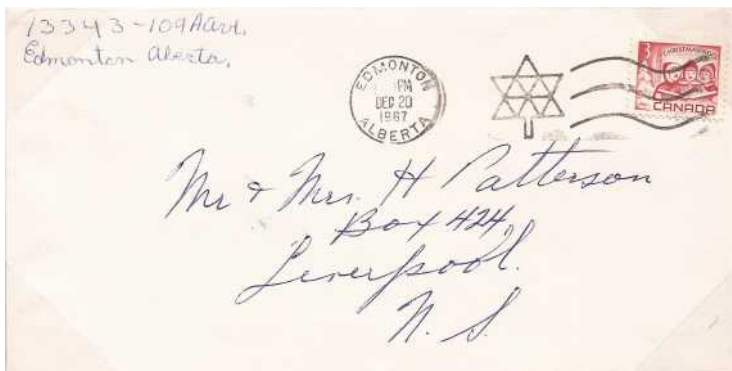 13343-109A Ave.
Edmonton Alberta.
EDMONTON
PM
DEC 20
1967
ALBERTA
3
CHRISTMAS NOËL
CANADA
Mr & Mrs. H Patterson
Box 424
Liverpool.
N. S.